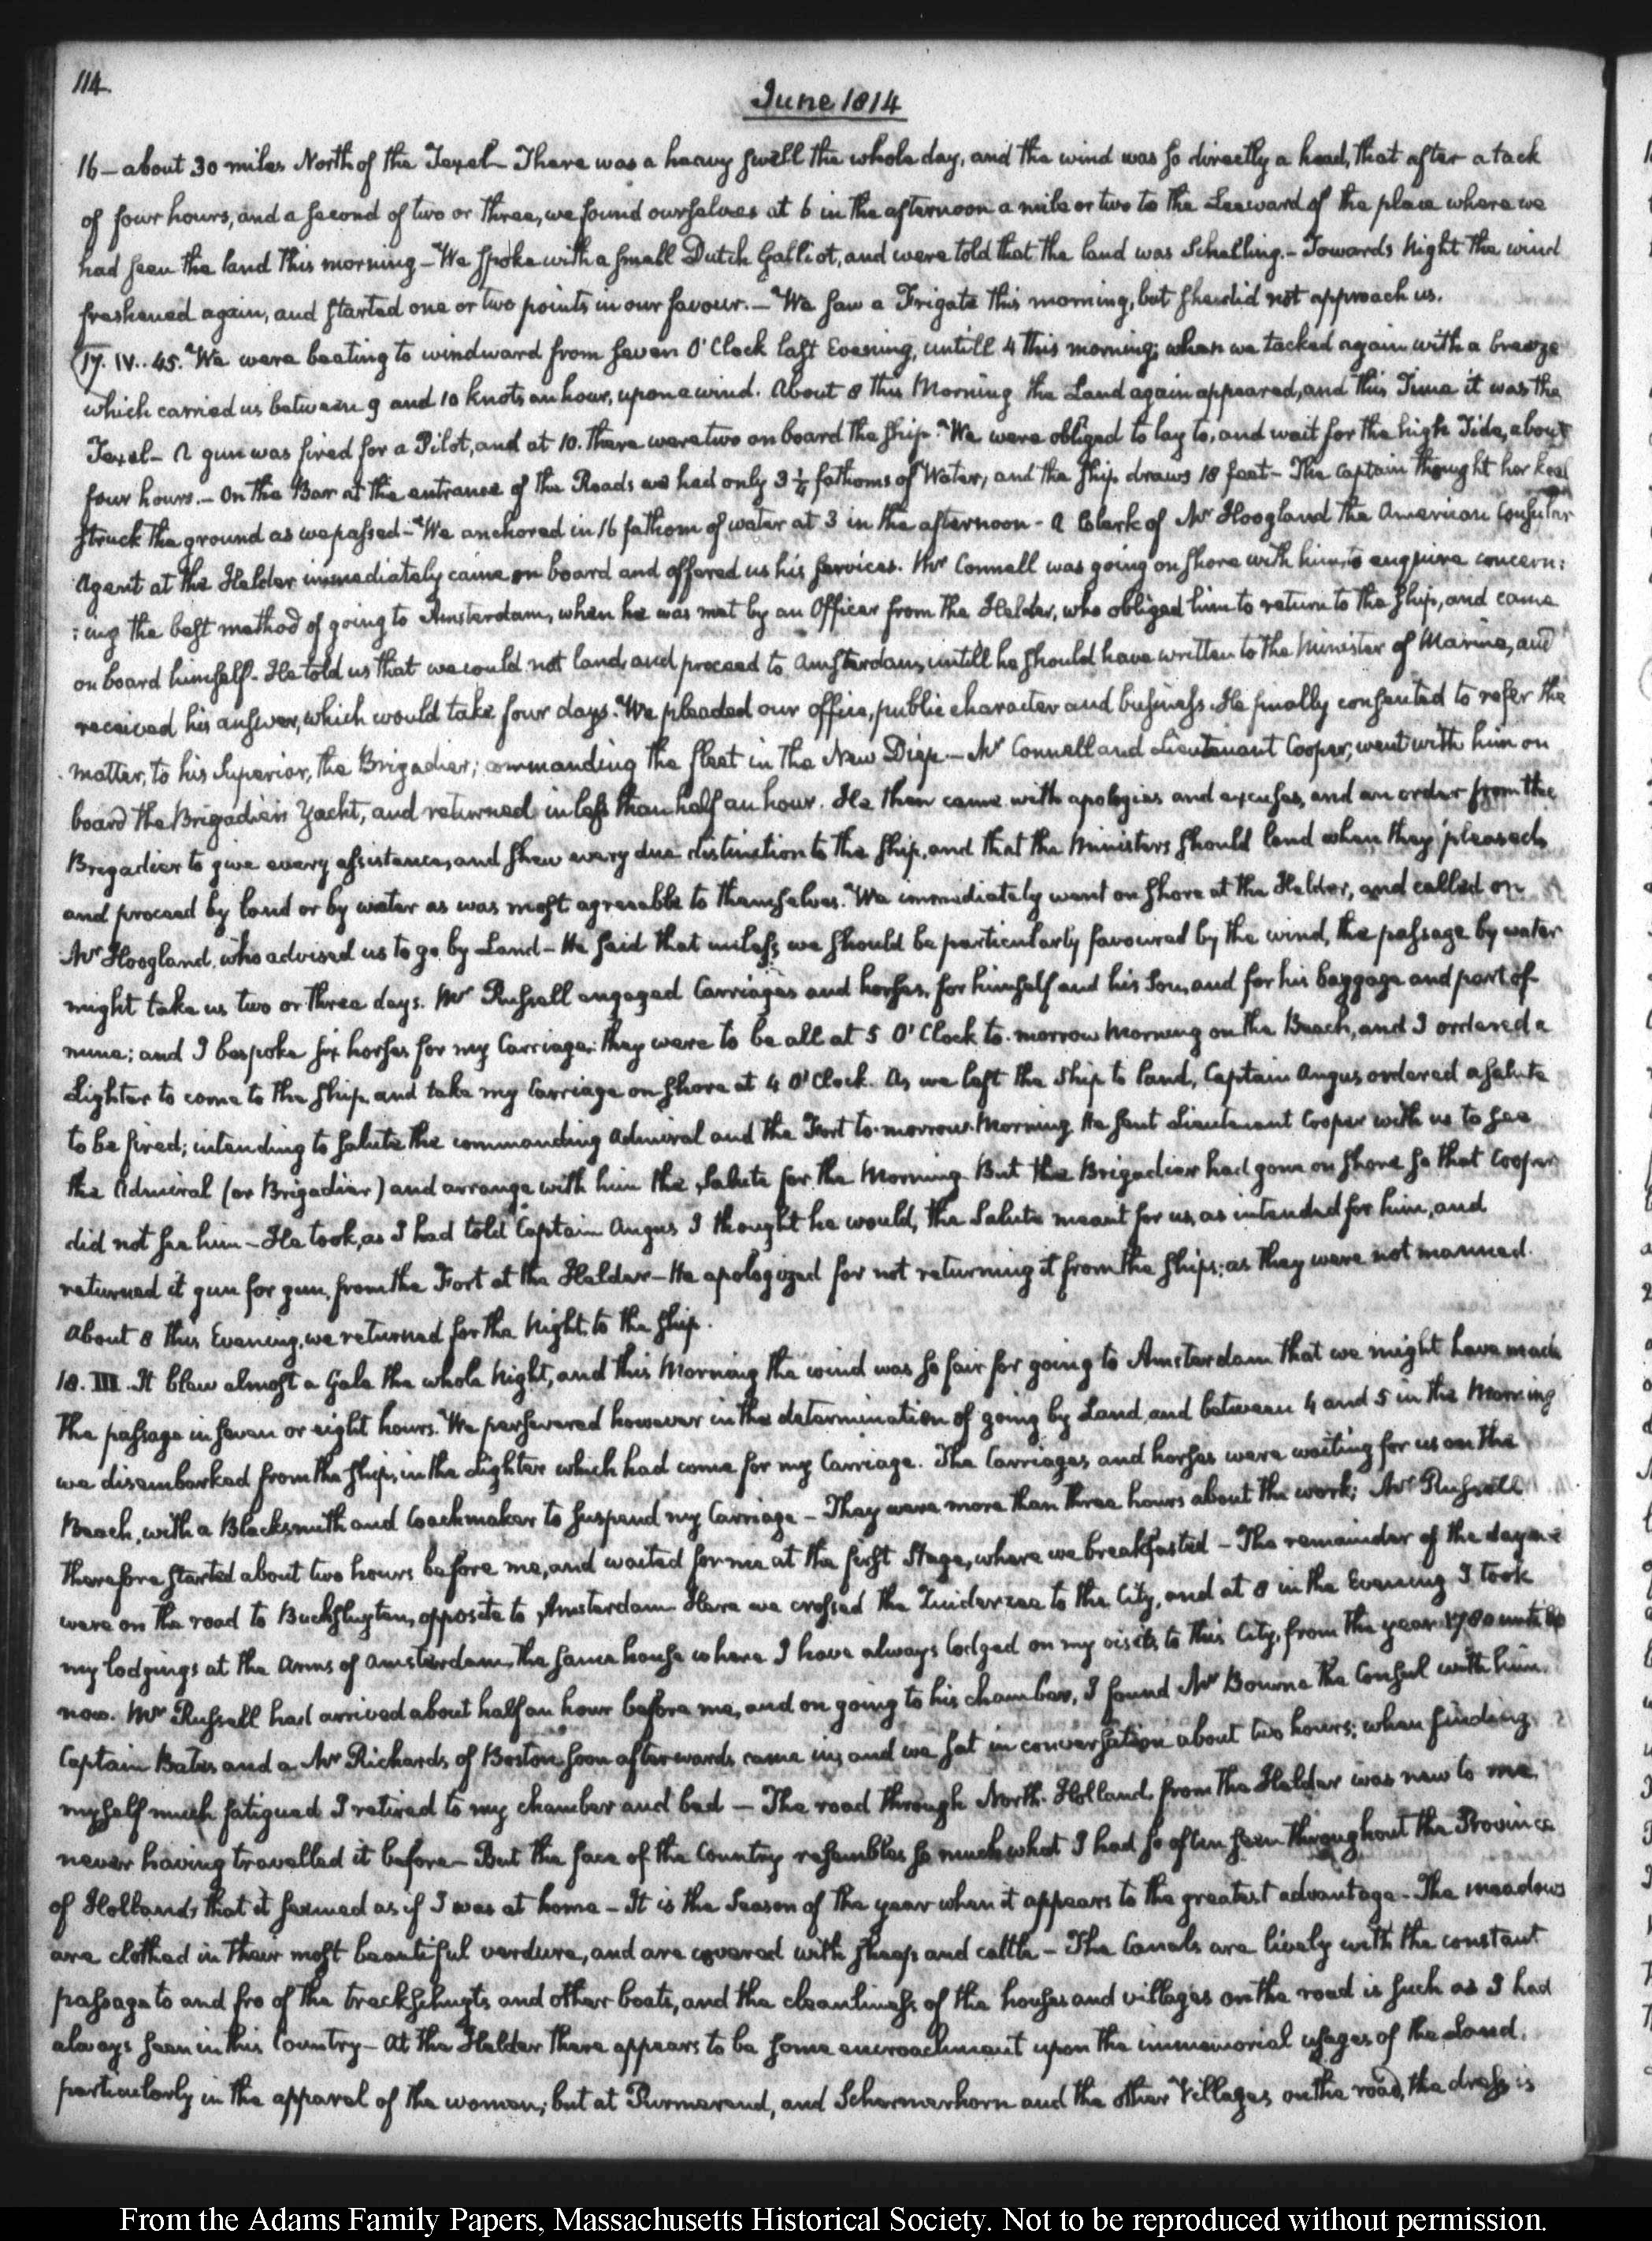 114.
June 1814
16 — about 30 miles North of the Texel — There was a heavy swell the whole day, and the wind was so directly a head, that after a tack
of four hours, and a second of two or three, we found ourselves at 6 in the afternoon a mile or two to the Leeward of the place where we
had seen the land this morning — We spoke with a small Dutch Galliot, and were told that the land was Schelling. — Towards Night the wind
freshened again, and started one or two points in our favour. — We saw a Frigate this morning, but she did not approach us.
17. IV.. 45. We were beating to windward from seven O'Clock last Evening, untill 4 this morning; when we tacked again with a breeze
which carried us between 9 and 10 knots an hour, upon a wind. About 8 this Morning the Land again appeared, and this Time it was the
Texel — A gun was fired for a Pilot, and at 10. there were two on board the ship. We were obliged to lay to, and wait for the high Tide, about
four hours. — On the Bar at the entrance of the Roads we had only 3 1/4 fathoms of Water, and the ship draws 18 feet — The Captain thought her keel
struck the ground as we passed — We anchored in 16 fathom of water at 3 in the afternoon — A Clerk of Mr Hoogland the American Consular
Agent at the Helder immediately came on board and offered us his services. Mr Connell was going on shore with him, to enquire concern:
:ing the best method of going to Amsterdam, when he was met by an Officer from the Helder, who obliged him to return to the ship, and came
on board himself. He told us that we could not land and proceed to Amsterdam, untill he should have written to the Minister of Marine, and
received his answer, which would take four days. We pleaded our office, public character and business. He finally consented to refer the
matter, to his Superior, the Brigadier; commanding the fleet in the New Diep. — Mr Connell and Lieutenant Cooper, went with him on
board the Brigadier's Yacht, and returned in less than half an hour. He then came with apologies and excuses, and an order from the
Brigadier to give every assistance, and shew every due distinction to the ship, and that the Ministers should land when they pleased,
and proceed by land or by water as was most agreeable to themselves. We immediately went on shore at the Helder, and called on
Mr Hoogland, who advised us to go by Land — He said that unless we should be particularly favoured by the wind, the passage by water
might take us two or three days. Mr Russell engaged Carriages and horses, for himself and his Son, and for his baggage and part of
mine; and I bespoke six horses for my Carriage: they were to be all at 5 O'Clock to-morrow Morning on the Beach, and I ordered a
Lighter to come to the ship, and take my Carriage on shore at 4 O'Clock. As we left the Ship to land, Captain Angus ordered a salute
to be fired; intending to salute the commanding Admiral and the Fort to-morrow Morning. He sent Lieutenant Cooper with us to see
the Admiral (or Brigadier) and arrange with him the salute for the Morning. But the Brigadier had gone on shore so that Cooper
did not see him — He took, as I had told Captain Angus I thought he would, the Salute meant for us, as intended for him, and
returned it gun for gun, from the Fort at the Helder — He apologized for not returning it from the ships; as they were not manned.
About 8 this Evening, we returned for the Night to the ship.
18. III. It blew almost a Gale the whole Night, and this Morning the wind was so fair for going to Amsterdam that we might have made
the passage in seven or eight hours. We persevered however in the determination of going by Land, and between 4 and 5 in the Morning
we disembarked from the ship, in the Lighter which had come for my Carriage. The Carriages and horses were waiting for us on the
Beach, with a Blacksmith and Coachmaker to suspend my Carriage — They were more than three hours about the work; Mr Russell
therefore started about two hours before me, and waited for me at the first Stage, where we breakfasted — The remainder of the day we
were on the road to Buckslugten, opposite to Amsterdam. Here we crossed the Zuiderzee to the City, and at 8 in the Evening I took
my lodgings at the Arms of Amsterdam, the same house where I have always lodged on my visits to this City, from the year 1780 untill
now. Mr Russell had arrived about half an hour before me, and on going to his chamber, I found Mr Bourne the Consul with him.
Captain Bates and a Mr Richards of Boston soon afterwards came in; and we sat in conversation about two hours; when finding
myself much fatigued I retired to my chamber and bed — The road through North-Holland, from the Helder was new to me,
never having travelled it before — But the face of the Country resembles so much what I had so often seen throughout the Province
of Holland, that it seemed as if I was at home — It is the Season of the year when it appears to the greatest advantage — The meadows
are clothed in their most beautiful verdure, and are covered with sheep and cattle — The Canals are lively with the constant
passage to and fro of the treckschuyts and other boats, and the cleanliness of the houses and villages on the road is such as I had
always seen in this Country — At the Helder there appears to be some encroachment upon the immemorial usages of the Land,
particularly in the apparel of the women; but at Purmerend, and Schermerhorn and the other Villages on the road, the dress is
From the Adams Family Papers, Massachusetts Historical Society. Not to be reproduced without permission.